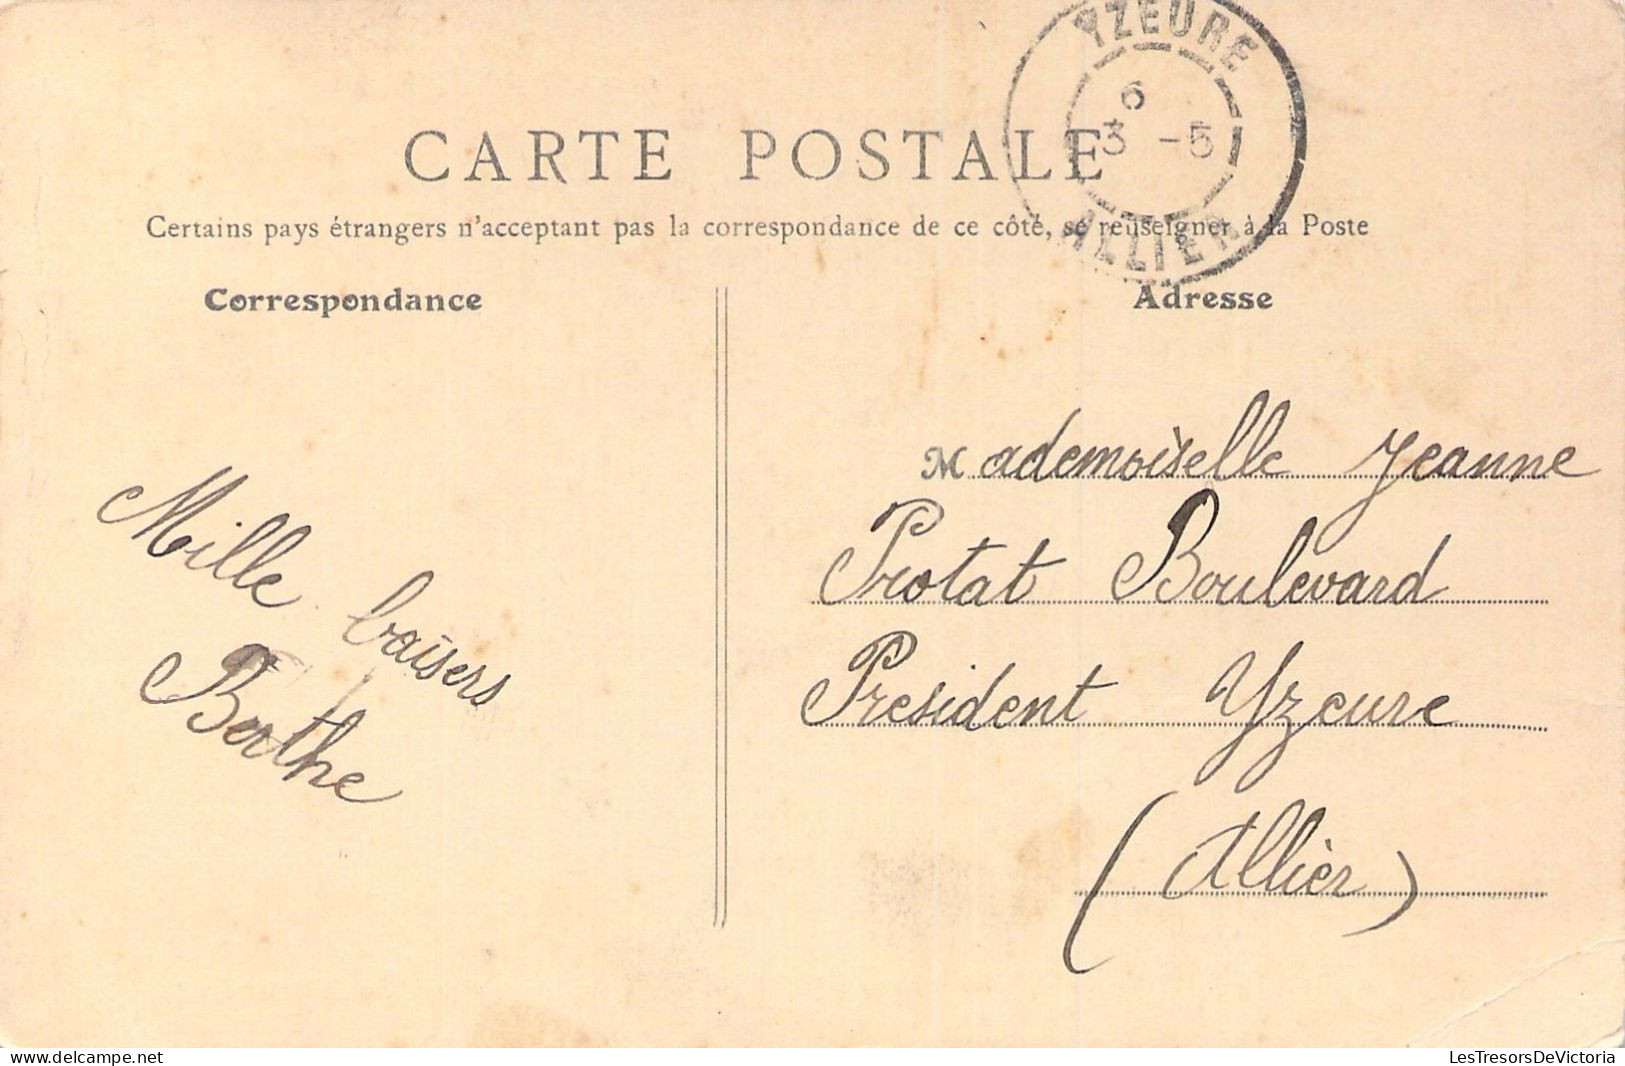 YZEURE
6
3 -5
ALLIER
CARTE POSTALE
Certains pays étrangers n'acceptant pas la correspondance de ce côté, se renseigner à la Poste
Correspondance
Mille baisers
Berthe
Adresse
Mademoiselle Jeanne
Protat Boulevard
President Yzeure
(Allièr)
www.delcampe.net
LesTresorsDeVictoria